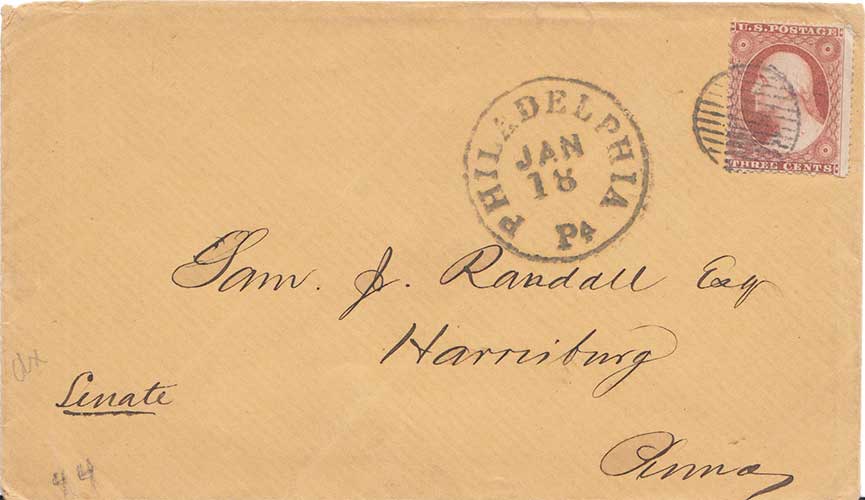 U.S. POSTAGE
THREE CENTS
PHILADELPHIA
JAN
18
Pa
Sam. J. Randall Esq
Harrisburg
Penna
Senate
44